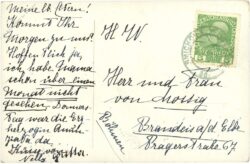 Meine lb. Eltern!
Kommt Ihr
Morgen zu uns?
Hoffentlich ja,
ich habe Mama
schon über einen
Monat nicht
gesehen. Donners-
tag war die Erz-
herzogin
da.
H W
Herr und Frau
von
Brandeis a/d Elbe
Pragerstraße 67
Böhmen